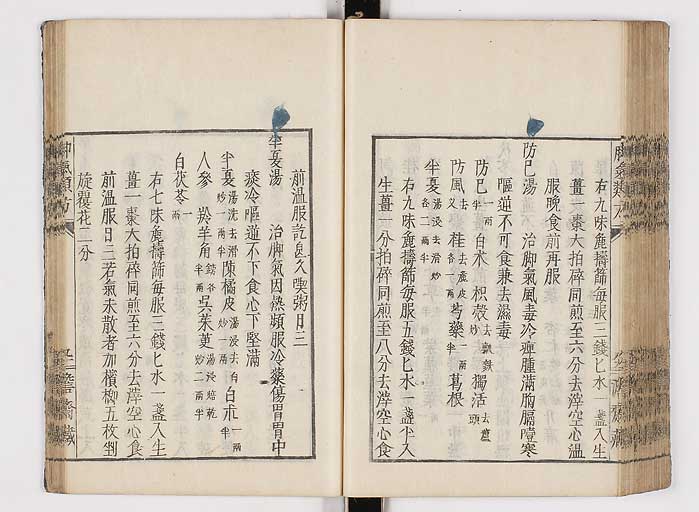 右九味麄擣篩每服三錢匕水一盞入生
薑一棗大拍碎同煎至六分去滓空心溫
服晚食前再服
防巳湯 治脚氣風毒冷痺腫滿胸膈噎寒
嘔逆不可食兼去濕毒
防巳一兩半 白朮 枳殼去瓤麩炒 獨活去蘆頭
防風去叉 桂去麄皮各一兩 芍藥一兩半 葛根
半夏湯洗去滑炒各二兩半
右九味麄擣篩每服五錢匕水一盞半入
生薑一分拍碎同煎至八分去滓空心食
前溫服訖良久喫粥日三
半夏湯 治脚氣因熱頻服冷藥傷胃胃中
痰冷嘔逆不下食心下堅滿
半夏湯洗去滑炒一兩半 陳橘皮湯浸去白炒一兩 白朮一兩半
人參 羚羊角鎊各一兩 吳茱萸湯浸焙乾炒二兩半
白茯苓一兩
右七味麄擣篩每服三錢匕水一盞入生
薑一棗大拍碎同煎至六分去滓空心食
前溫服日三若氣未散者加檳榔五枚剉
旋覆花二分
脚氣類方